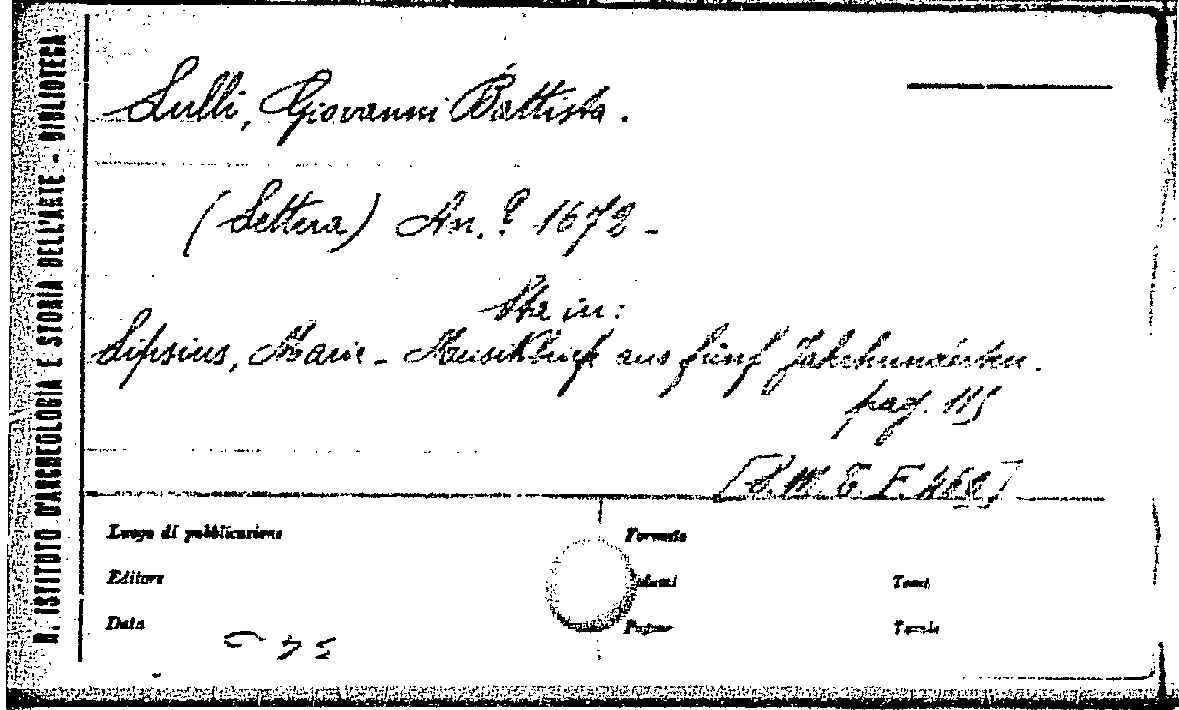 R. ISTITUTO D'ARCHEOLOGIA E STORIA DELL'ARTE - BIBLIOTECA
Lulli, Giovanni Battista.
(Lettera) An. ? 1672 -
Sta in:
Lipsius, Marie - Musikbriefe aus fünf Jahrhunderten.
pag. 115
Luogo di pubblicazione
Formato
Editore
Volumi
Tomi
Data
Pagine
Tavole